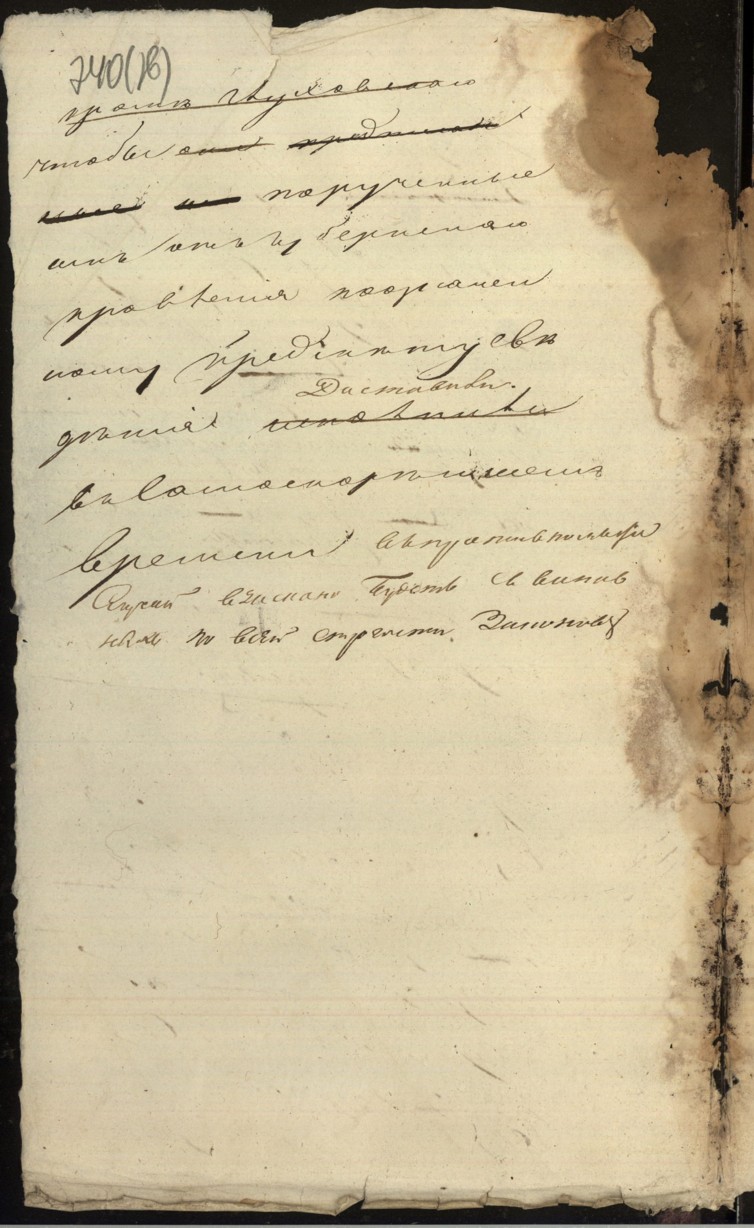 740(78)
кроме Глуховскаго
чтобы они
порученные
имъ отъ губернскаго
правленія по означен
ному предмету свѣ
Доставили
дѣнія
въ самоскорѣйшемъ
времени въ противномъ
случаи взыскано будетъ с винов
ныхъ по всей строгости Законовъ